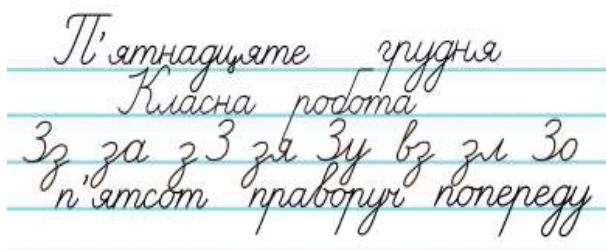 П'ятнадцяте грудня
Класна робота
Зз за з З зя Зу вз зл Зо
п'ятсот праворуч попереду